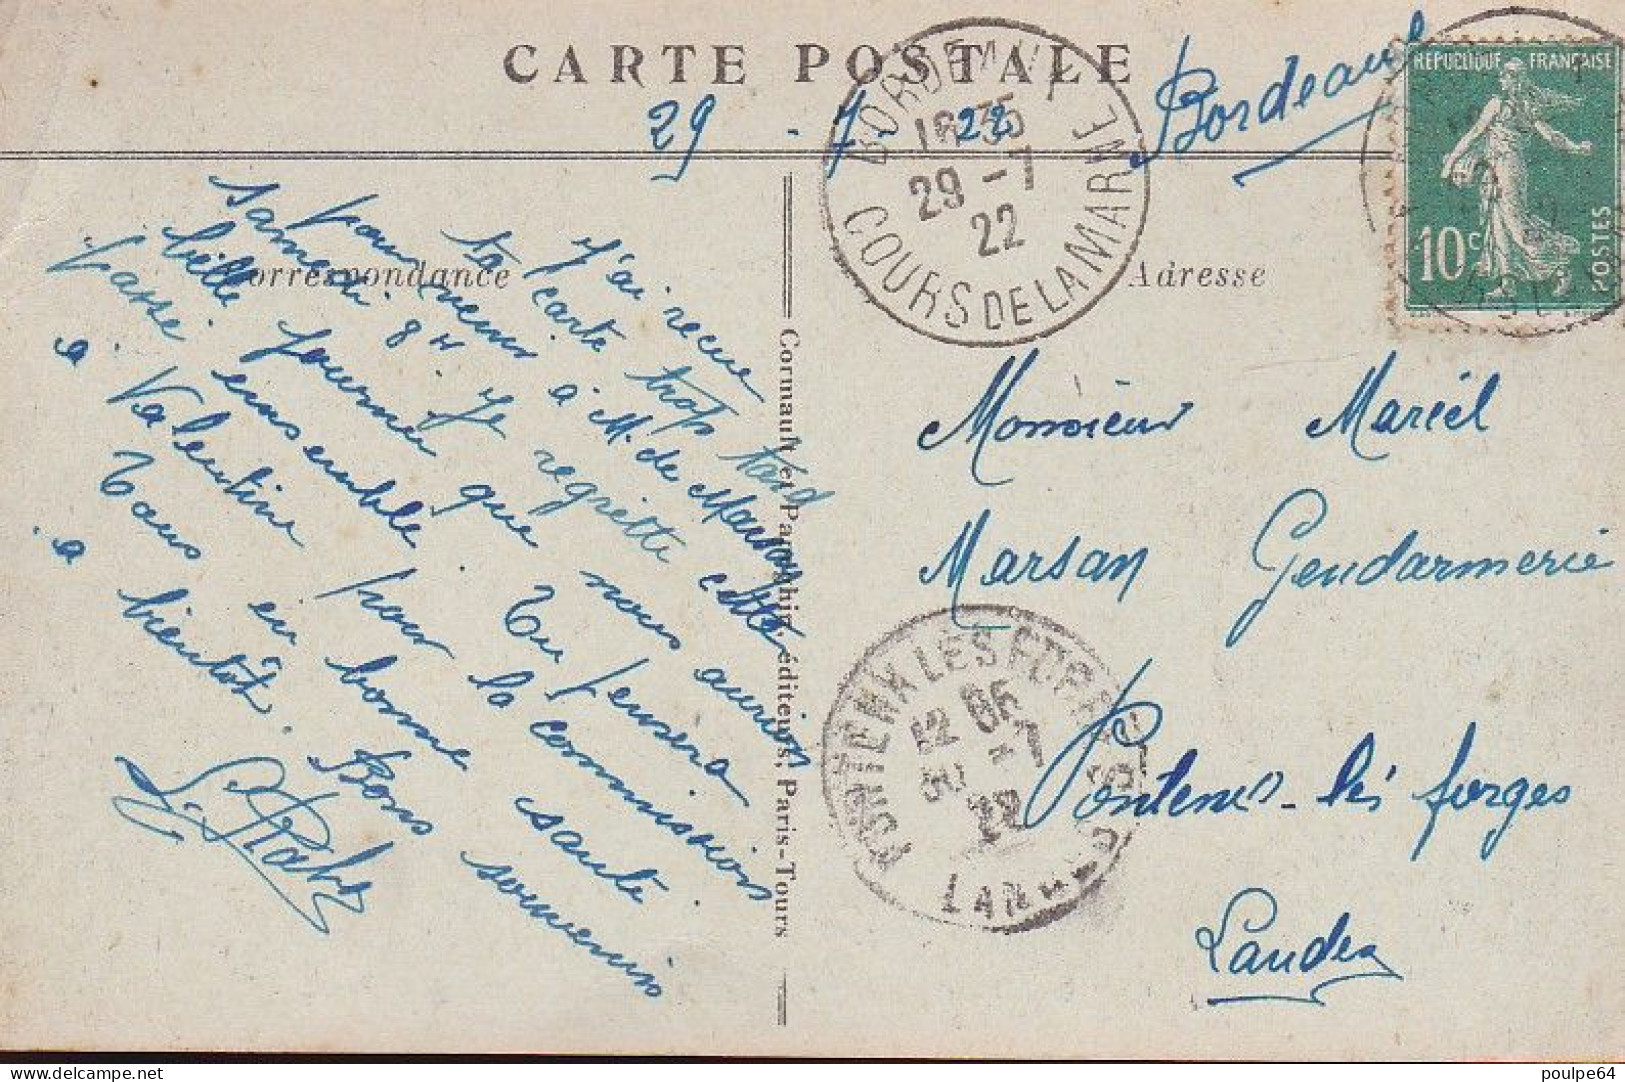 CARTE POSTALE
29 - 7 - 22 Bordeaux
BORDEAUX
18 35
29 - 7
22
COURS DE LA MARNE
REPUBLIQUE FRANÇAISE
10c
POSTES
Correspondance
Adresse
J'ai reçue
ta carte trop tard
pour venir à M. de Marsan
samedi 8H. Je regrette cette
belle journée que nous aurions
passé ensemble. Tu pensera
à Valentine pour la commission
Tous en bonne santé
a bientôt. Bons souvenirs
Cormault et Papeghin, éditeurs, Paris-Tours
Monsieur Marcél
Marsan Gendarmerie
Pontenx-les forges
Landes
PONTENX LES FORGES
30 -7
22
LANDES
Delcampe.net
poulpe64